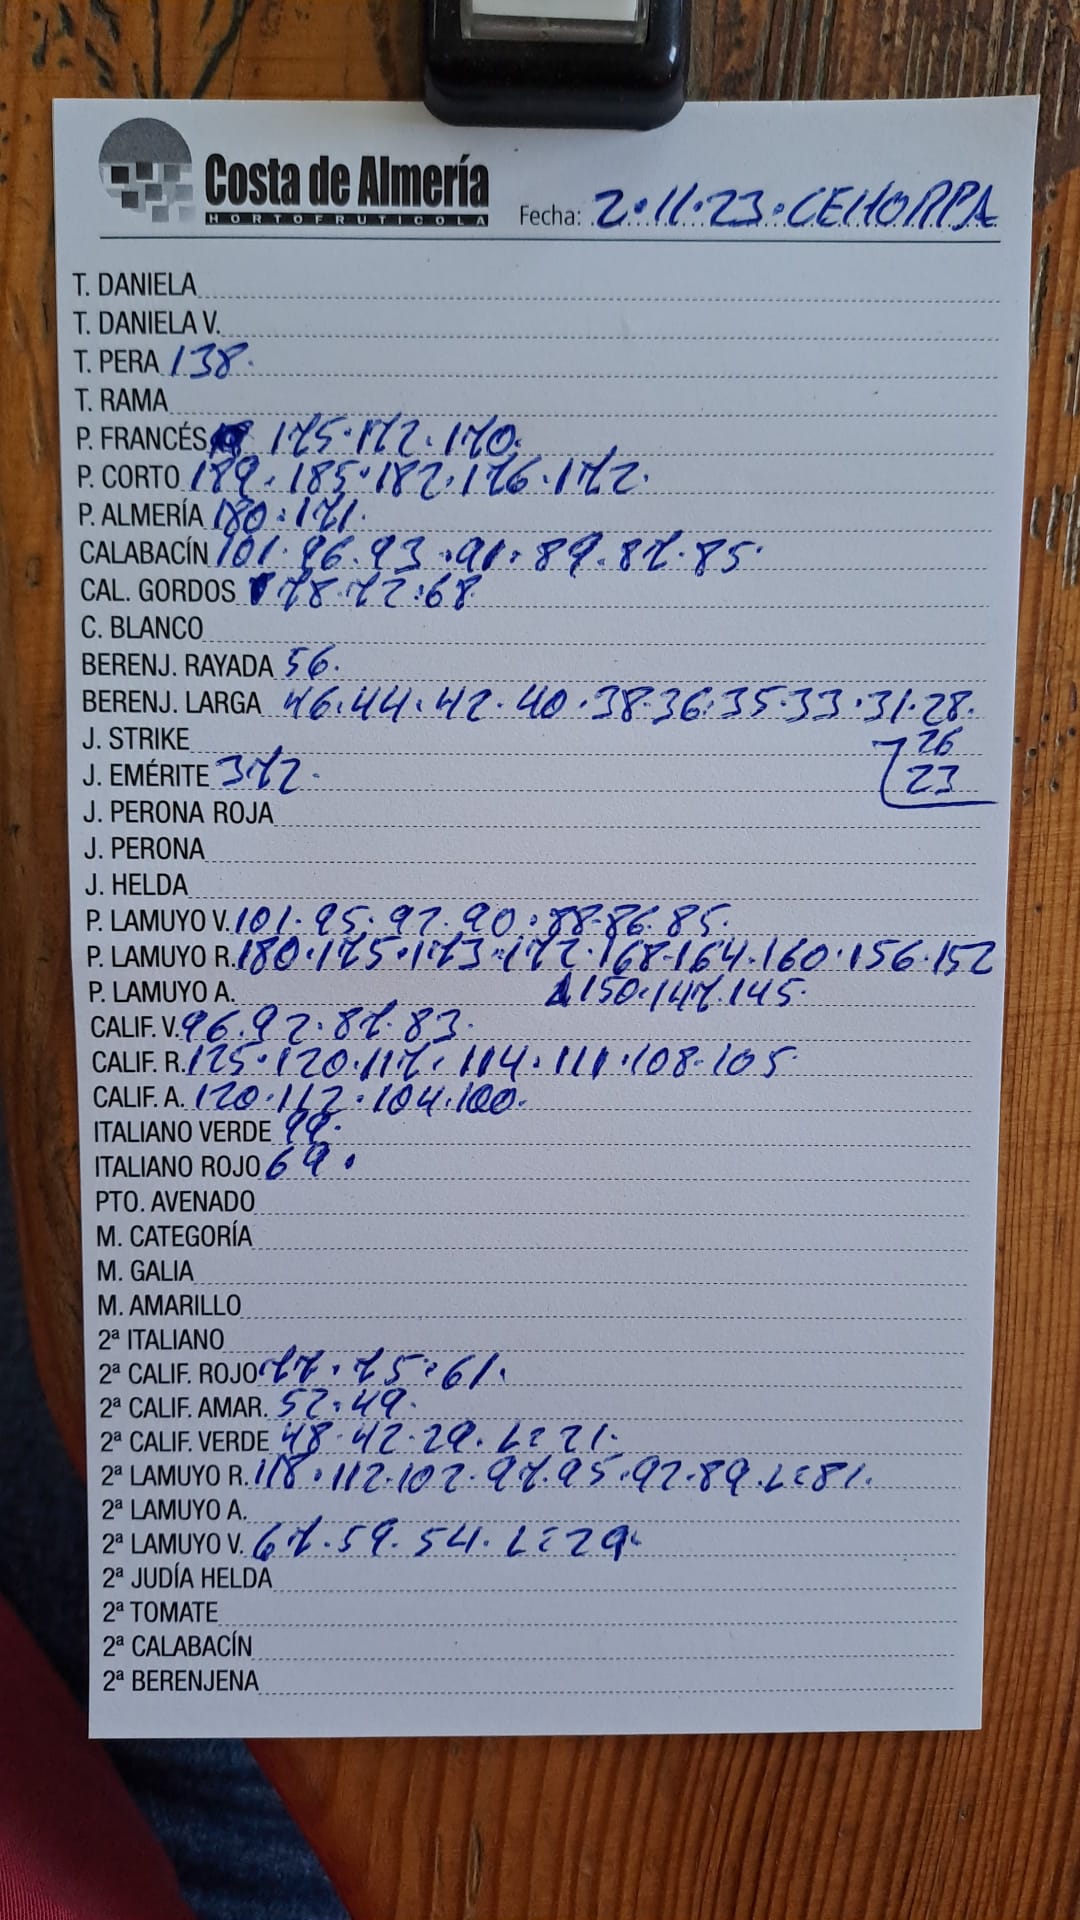 Costa de Almería
HORTOFRUTICOLA
Fecha: 2·11·23·CEHORPA
T. DANIELA
T. DANIELA V.
T. PERA 138.
T. RAMA
P. FRANCÉS 175·172·170.
P. CORTO 189·185·182·176·172.
P. ALMERÍA 180·171.
CALABACÍN 101·96·93·91·89·87·85·
CAL. GORDOS 78·72·68
C. BLANCO
BERENJ. RAYADA 56.
BERENJ. LARGA 46·44·42·40·38·36·35·33·31·28.
J. STRIKE 26
J. EMÉRITE 372. 23
J. PERONA ROJA
J. PERONA
J. HELDA
P. LAMUYO V. 101·95·92·90·88·86·85.
P. LAMUYO R. 180·175·173·172·168·164·160·156·152
P. LAMUYO A. 150·147·145.
CALIF. V. 96·92·87·83.
CALIF. R. 125·120·117·114·111·108·105
CALIF. A. 120·112·104·100.
ITALIANO VERDE 99.
ITALIANO ROJO 69.
PTO. AVENADO
M. CATEGORÍA
M. GALIA
M. AMARILLO
2ª ITALIANO
2ª CALIF. ROJO 77·75·61.
2ª CALIF. AMAR. 52·49.
2ª CALIF. VERDE 48·42·29. L=21.
2ª LAMUYO R. 118·112·102·97·95·92·89. L=81.
2ª LAMUYO A.
2ª LAMUYO V. 67·59·54. L=29.
2ª JUDÍA HELDA
2ª TOMATE
2ª CALABACÍN
2ª BERENJENA